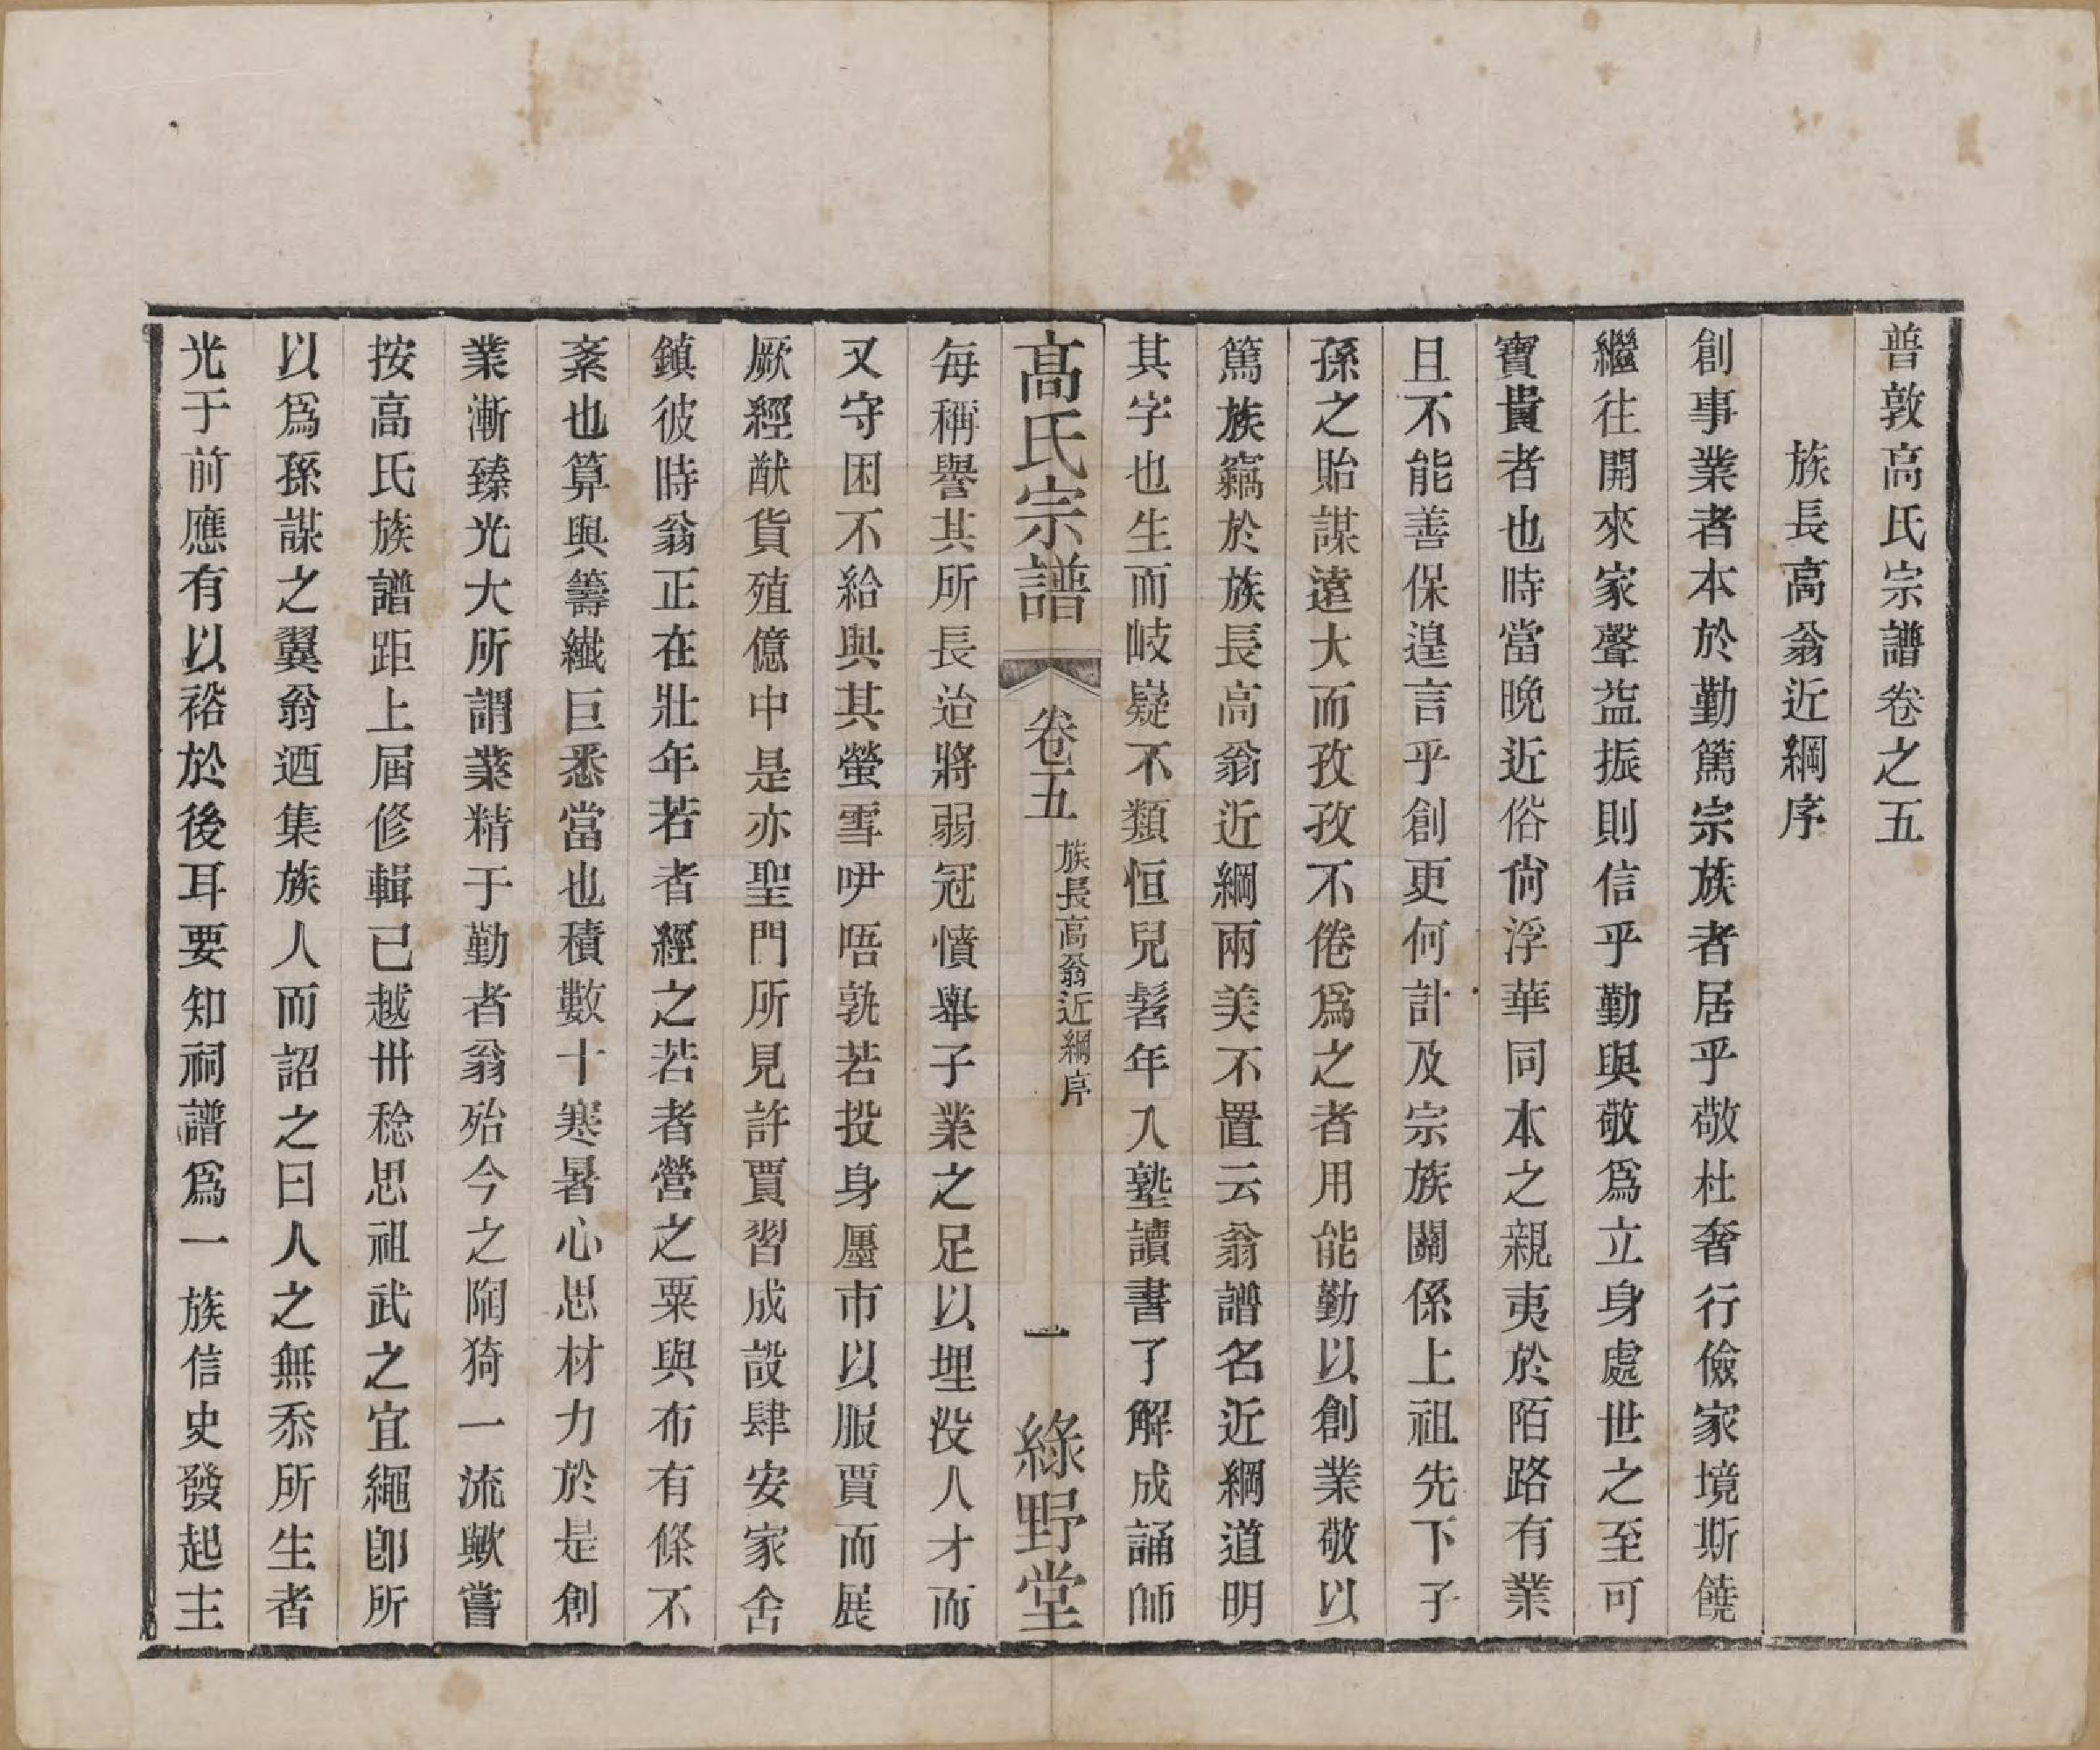 普敦高氏宗譜卷之五
族長高翁近綱序
創事業者本於勤篤宗族者居乎敬杜奢行儉家境斯饒
繼往開來家聲益振則信乎勤與敬爲立身處世之至可
寶貴者也時當晚近俗尙浮華同本之親夷於陌路有業
且不能善保遑言乎創更何計及宗族關係上祖先下子
孫之貽謀遠大而孜孜不倦爲之者用能勤以創業敬以
篤族竊於族長高翁近綱兩美不置云翁譜名近綱道明
其字也生而岐嶷不類恒兒髫年入塾讀書了解成誦師
高氏宗譜 卷五 族長高翁近綱序 一 綠野堂
每稱譽其所長迨將弱冠憤舉子業之足以埋没人才而
又守困不給與其螢雪咿唔孰若投身廛市以服賈而展
厥經猷貨殖億中是亦聖門所見許賈習成設肆安家舍
鎮彼時翁正在壯年若者經之若者營之粟與布有條不
紊也算與籌纖巨悉當也積數十寒暑心思材力於是創
業漸臻光大所謂業精于勤者翁殆今之陶猗一流歟嘗
按高氏族譜距上屆修輯已越卅稔思祖武之宜繩卽所
以爲孫謀之翼翁迺集族人而詔之曰人之無忝所生者
光于前應有以裕於後耳要知祠譜爲一族信史發起主